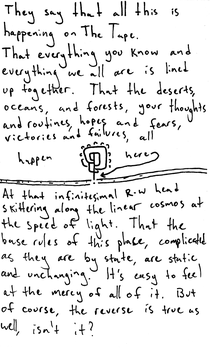 They say that all this is
happening on The Tape.
That everything you know and
everything we all are is lined
up together. That the deserts,
oceans, and forests, your thoughts
and routines, hopes and fears,
victories and failures, all
happen here
At that infinitesimal R-W head
skittering along the linear cosmos at
the speed of light. That the
base rules of this place, complicated
as they are by state, are static
and unchanging. It's easy to feel
at the mercy of all of it. But
of course, the reverse is true as
well, isn't it?